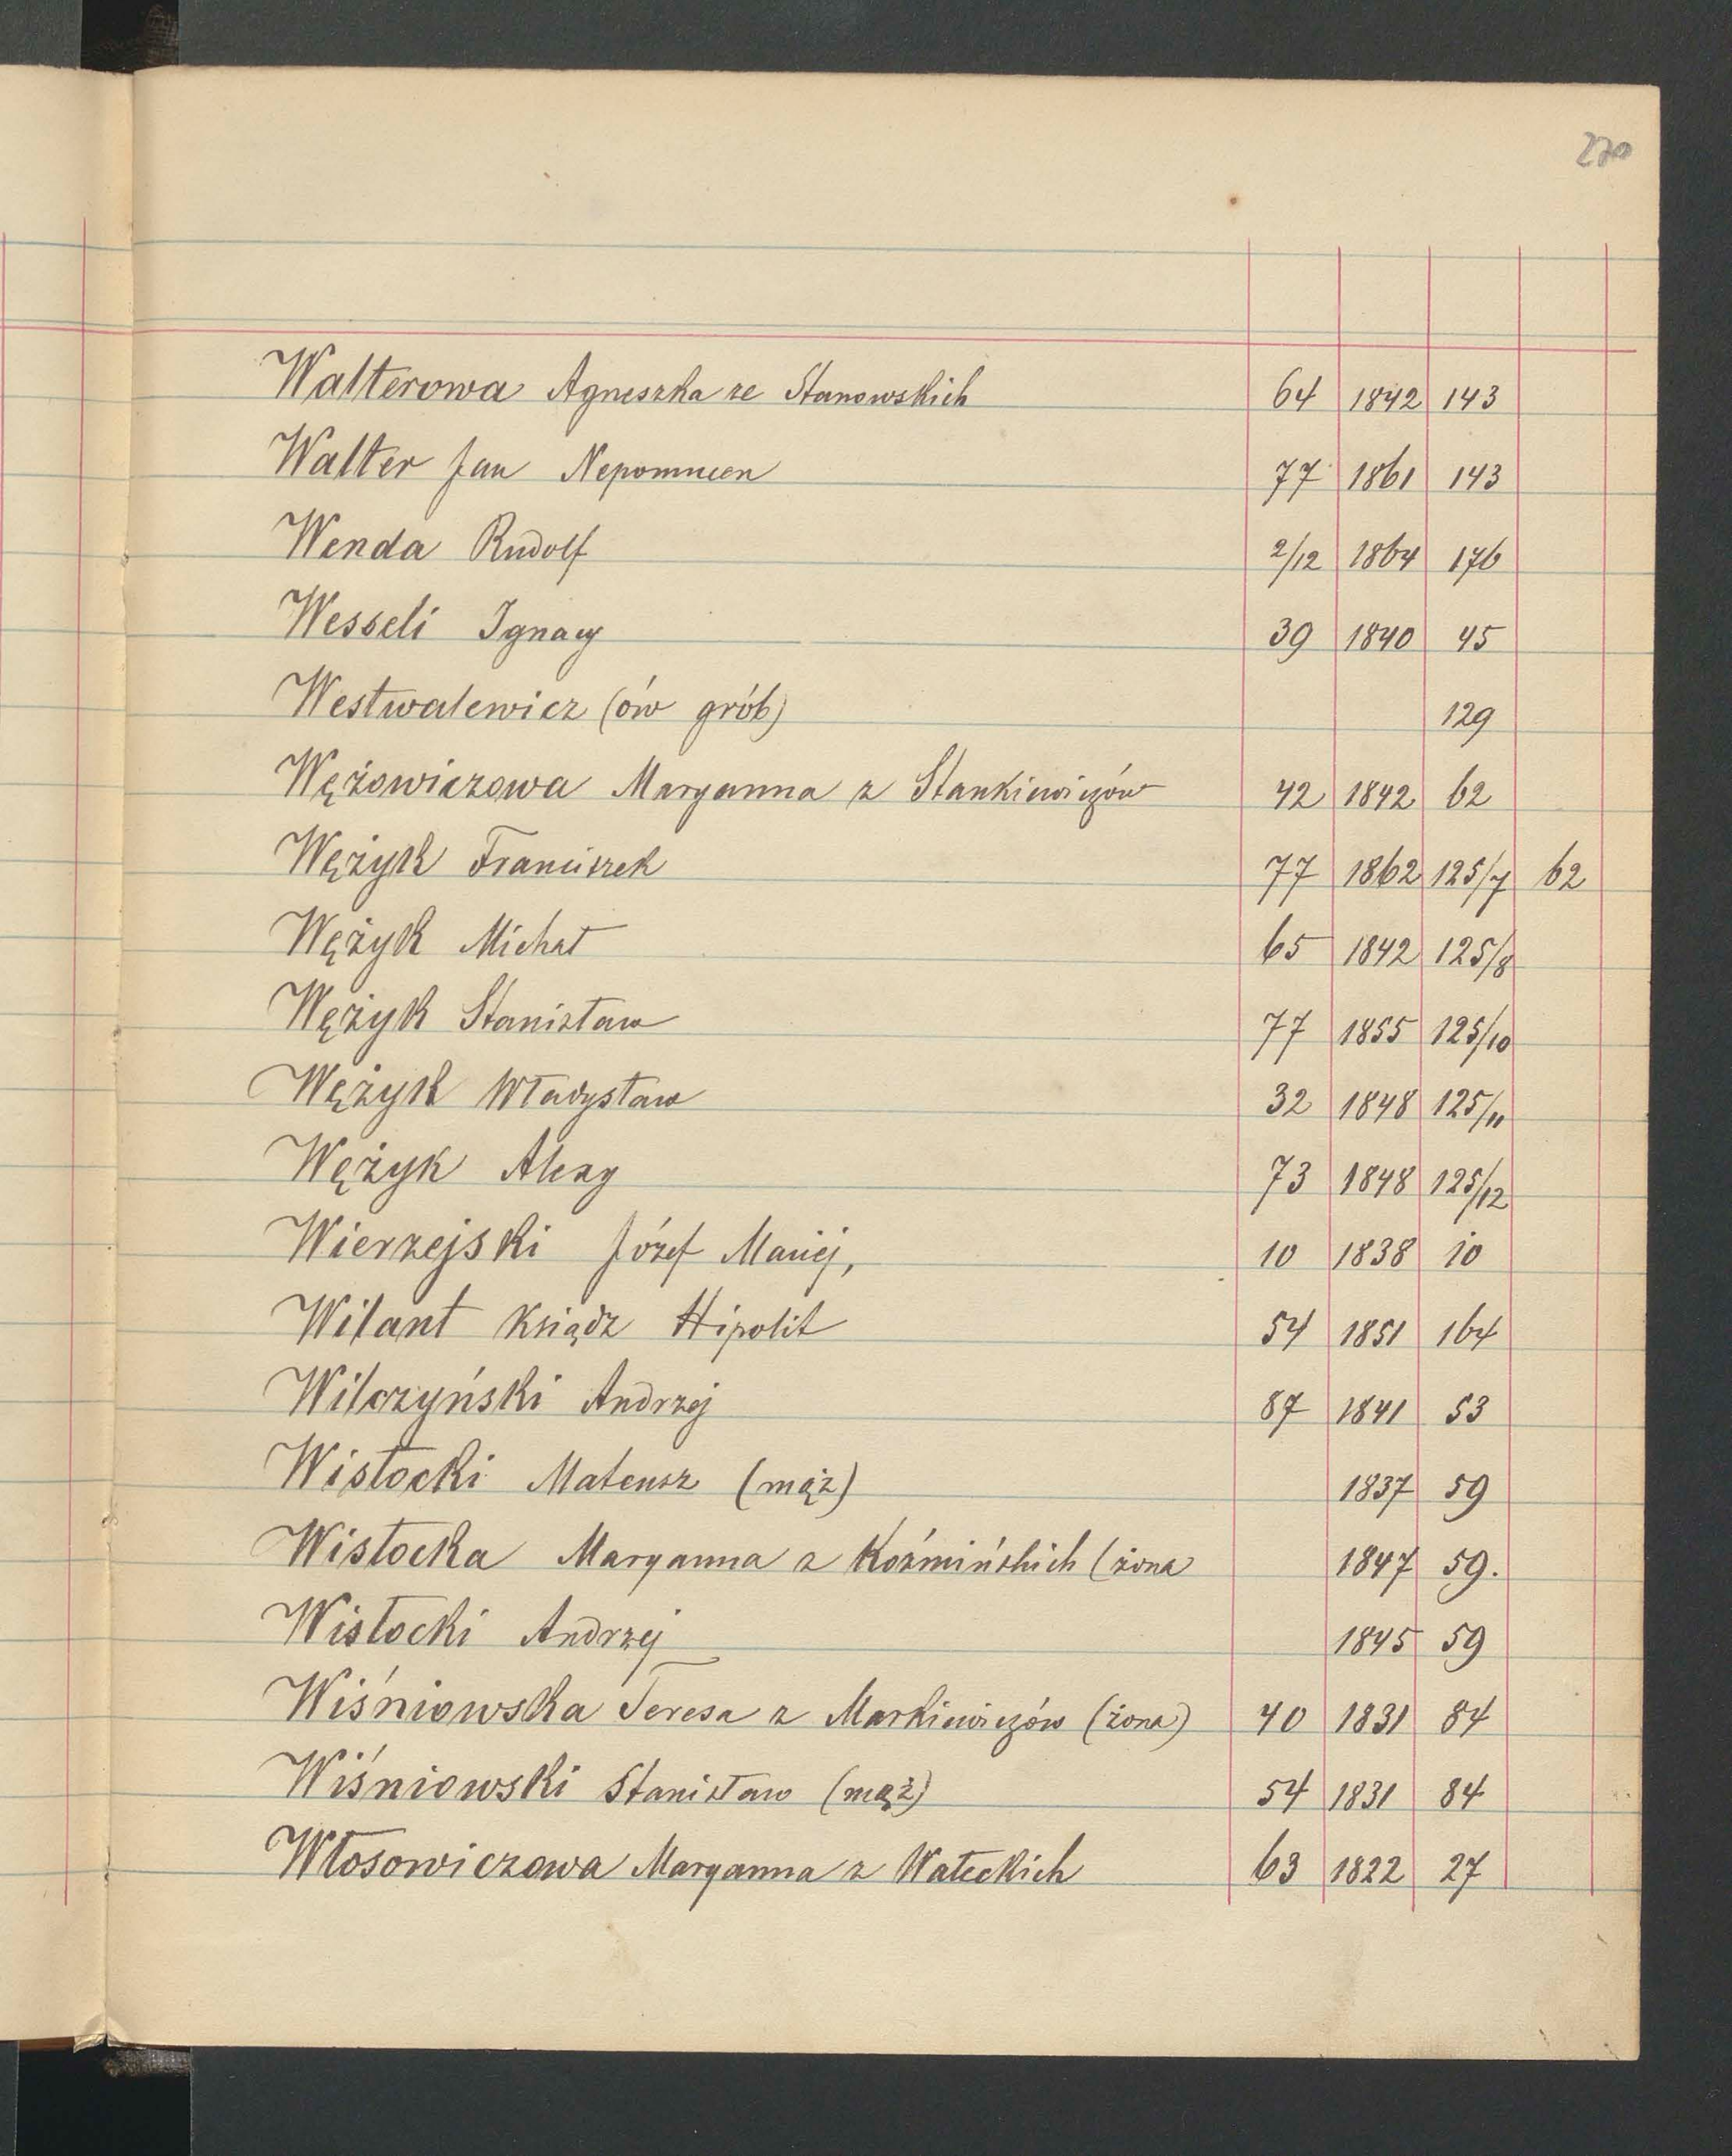 270
Walterowa Agneszka ze Stanowskich 64 1842 143
Walter Jan Nepomucen 77 1861 143
Wenda Rudolf 2/12 1864 176
Wesseli Ignacy 39 1840 45
Westwalewicz (ów grób) 129
Wężowiczowa Maryanna z Stankiewiczów 42 1842 62
Wężyk Franciszek 77 1862 125/7 62
Wężyk Michał 65 1842 125/8
Wężyk Stanisław 77 1855 125/10
Wężyk Władysław 32 1848 125/11
Wężyk Alexy 73 1848 125/12
Wierzejski Józef Maciej, 10 1838 10
Wilant Ksiądz Hipolit 54 1851 164
Wilczyński Andrzej 87 1841 53
Wisłocki Mateusz (mąż) 1837 59
Wisłocka Maryanna z Koźmińskich (żona 1847 59.
Wisłocki Andrzej 1845 59
Wiśniowska Teresa z Markiewiczów (żona) 40 1831 84
Wiśniowski Stanisław (mąż) 54 1831 84
Włosowiczowa Maryanna z Wałeckich 63 1822 27